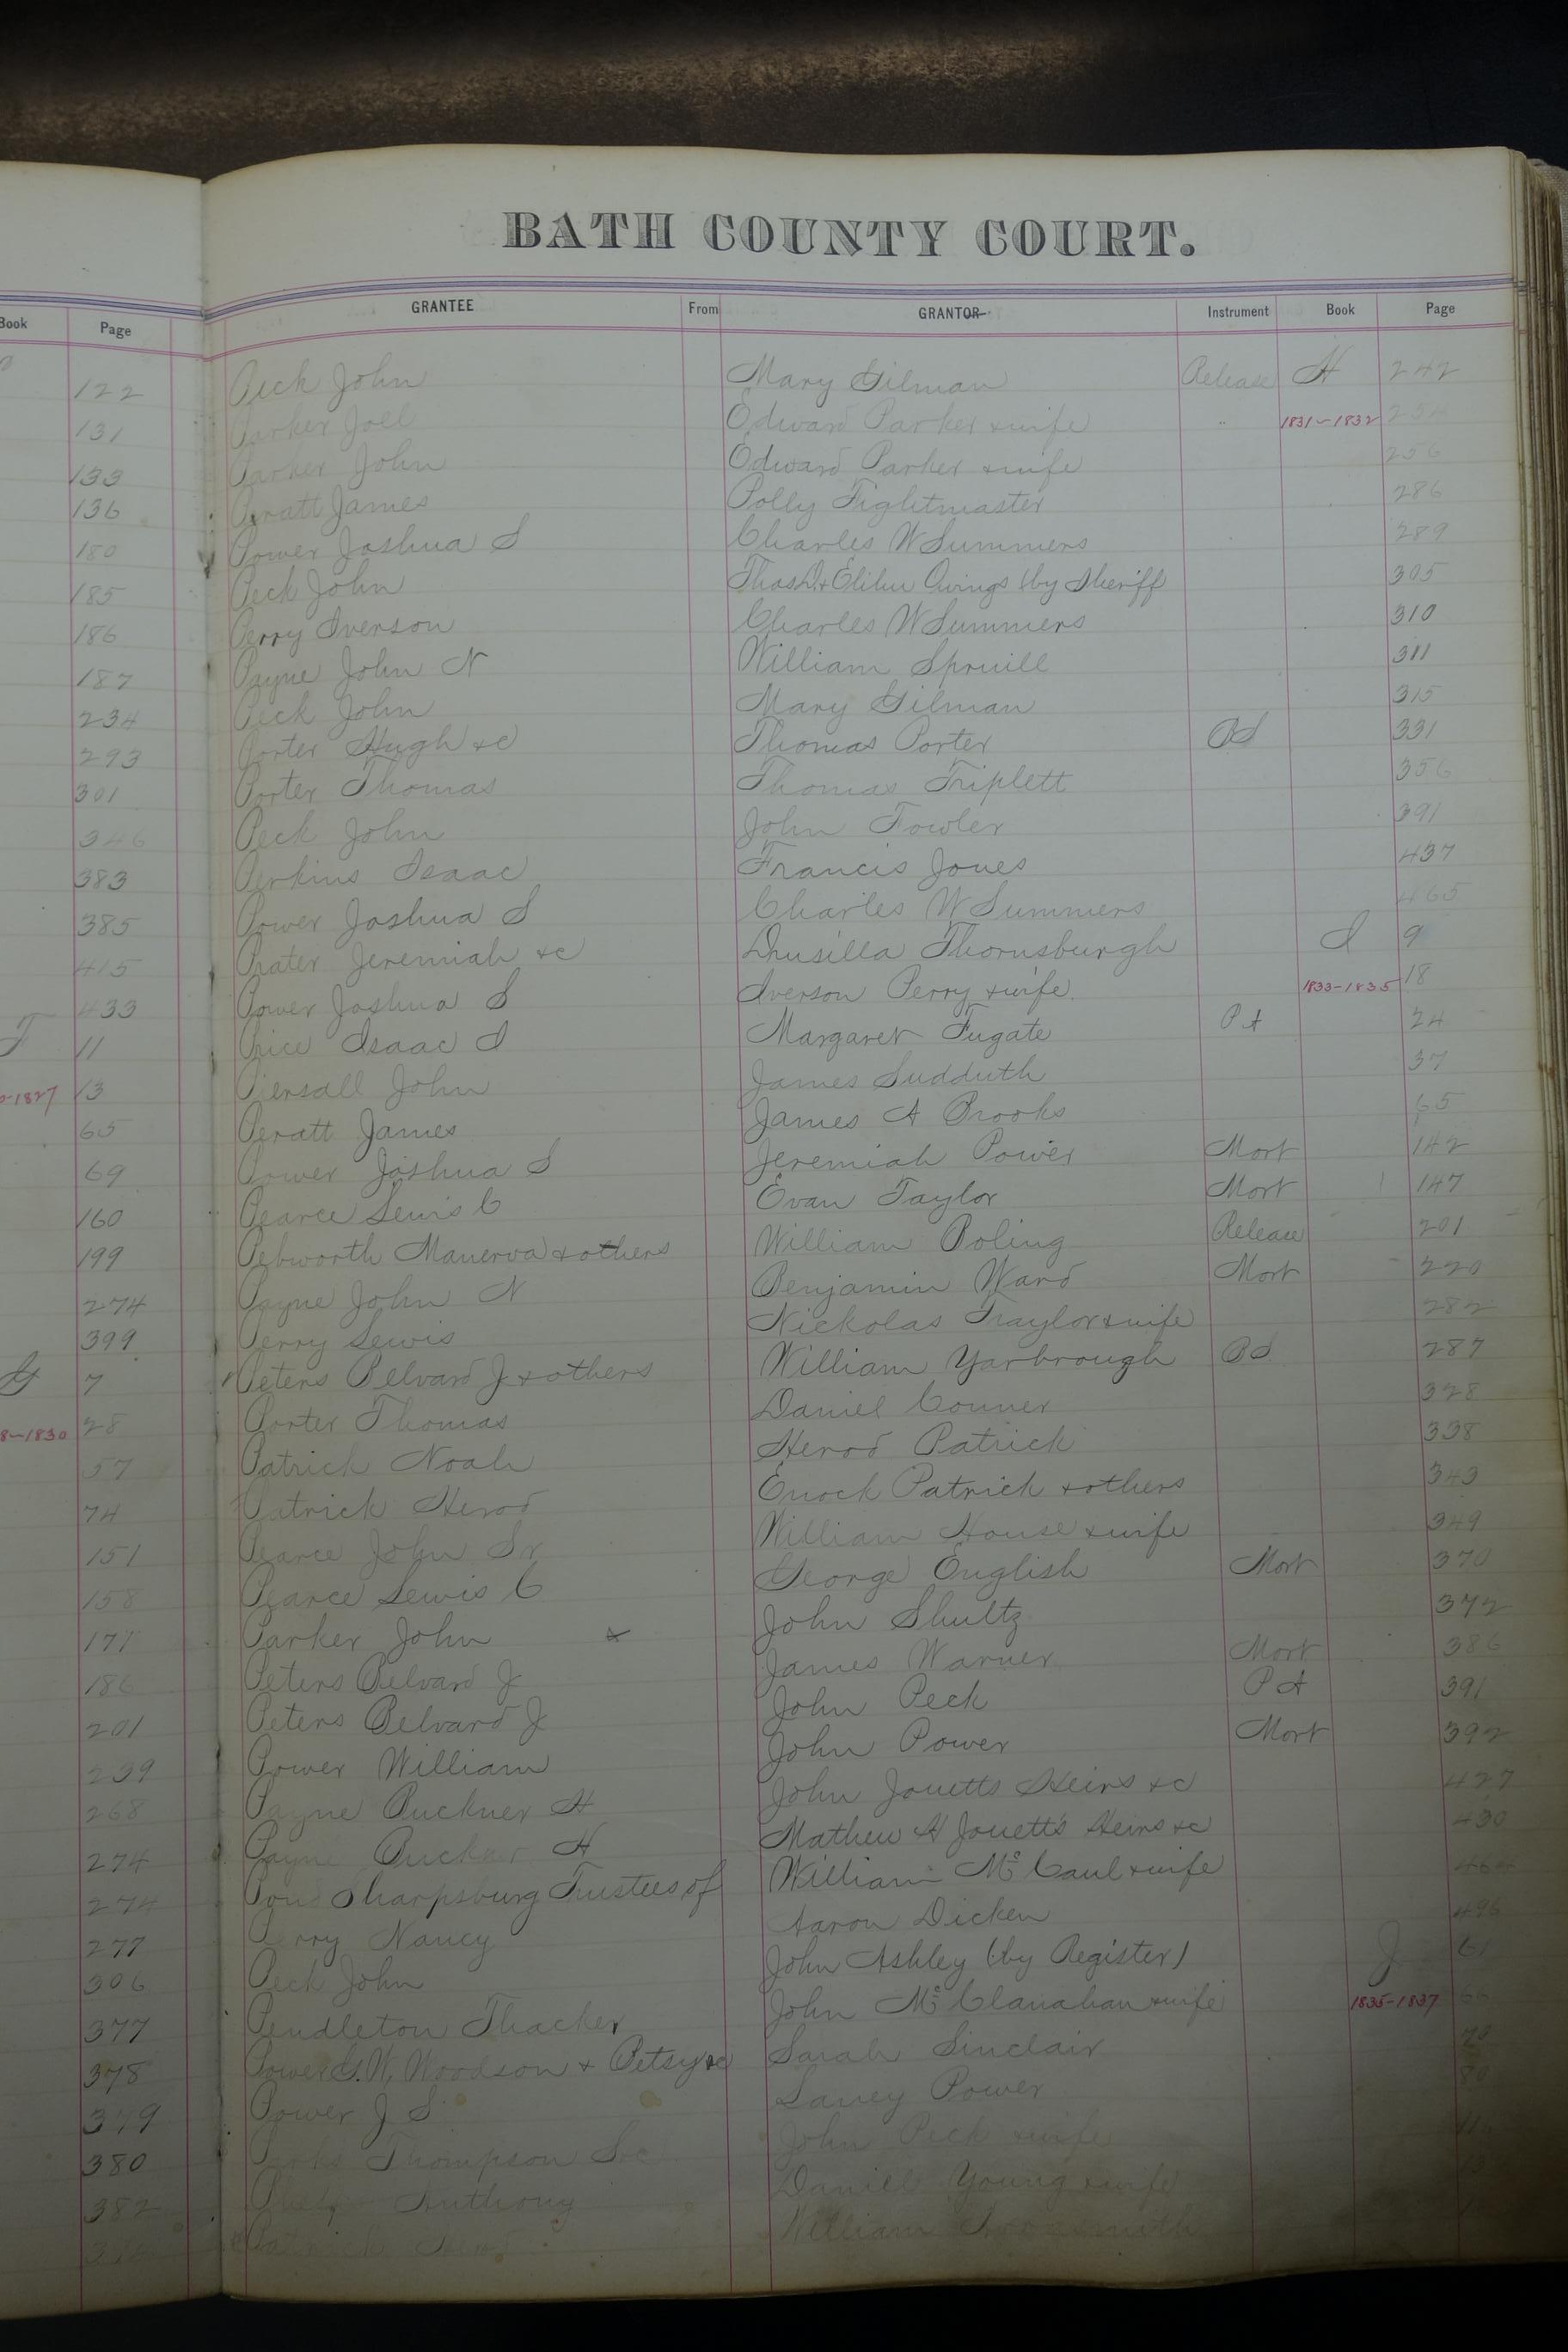 BATH COUNTY COURT.
Book Page GRANTEE From GRANTOR Instrument Book Page
122 Peck John Mary Gilman Release H 242
131 Parker Joel Edward Parker & wife " 1831-1832
133 Parker John Edward Parker & wife 256
136 Peratt James Polly Fightmaster 286
180 Power Joshua S Charles W Summers 289
185 Peck John Thos D. & Elihu Owings (by Sheriff 305
186 Perry Iverson Charles W Summers 310
187 Payne John N William Spruill 311
234 Peck John Mary Gilman 315
293 Porter Hugh &c Thomas Porter Bd 331
301 Porter Thomas Thomas Triplett 356
346 Peck John John Fowler 391
383 Perkins Isaac Francis Jones 437
385 Power Joshua S Charles W Summers 465
415 Prater Jeremiah &c Drusilla Thornsburgh I 9
433 Power Joshua S Iverson Perry & wife 1833-1835 18
11 Price Isaac I Margaret Fugate PA 24
-1827 13 Piersall John James Sudduth 37
65 Peratt James James A Brooks 65
69 Power Joshua S Jeremiah Power Mort 142
160 Pearce Lewis C Evan Taylor Mort 147
199 Pebworth Manerva & others William Boling Release 201
274 Payne John N Benjamin Ward Mort 220
399 Perry Lewis Nickolas Traylor & wife 282
G 7 Peters Belvard J & others William Yarbrough Bd 287
8-1830 28 Porter Thomas Daniel Conner 328
57 Patrick Noah Herod Patrick 338
74 Patrick Herod Enock Patrick & others 343
151 Pearce John Sr William House & wife 349
158 Pearce Lewis C George English Mort 370
171 Parker John John Shultz 372
186 Peters Belvard J James Warner Mort 386
201 Peters Belvard J John Peck PA 391
239 Power William John Power Mort 392
268 Payne Buckner H John Jouetts Heirs &c 427
274 Payne Buckner H Mathew H Jouett's Heirs &c 430
274 Sharpsburg Trustees of William McCaul & wife
277 Perry Nancy Aaron Dicken 496
306 Peck John John Ashley (by Register) J 61
377 Pendleton Thacker John McClanahan & wife 1835-1837
378 Power G. W, Woodson & Betsy &c Sarah Sinclair 70
379 Power J S Laney Power 80
380 Thompson John Peck & wife
382 Anthony Daniel Young & wife
Patrick Herod William